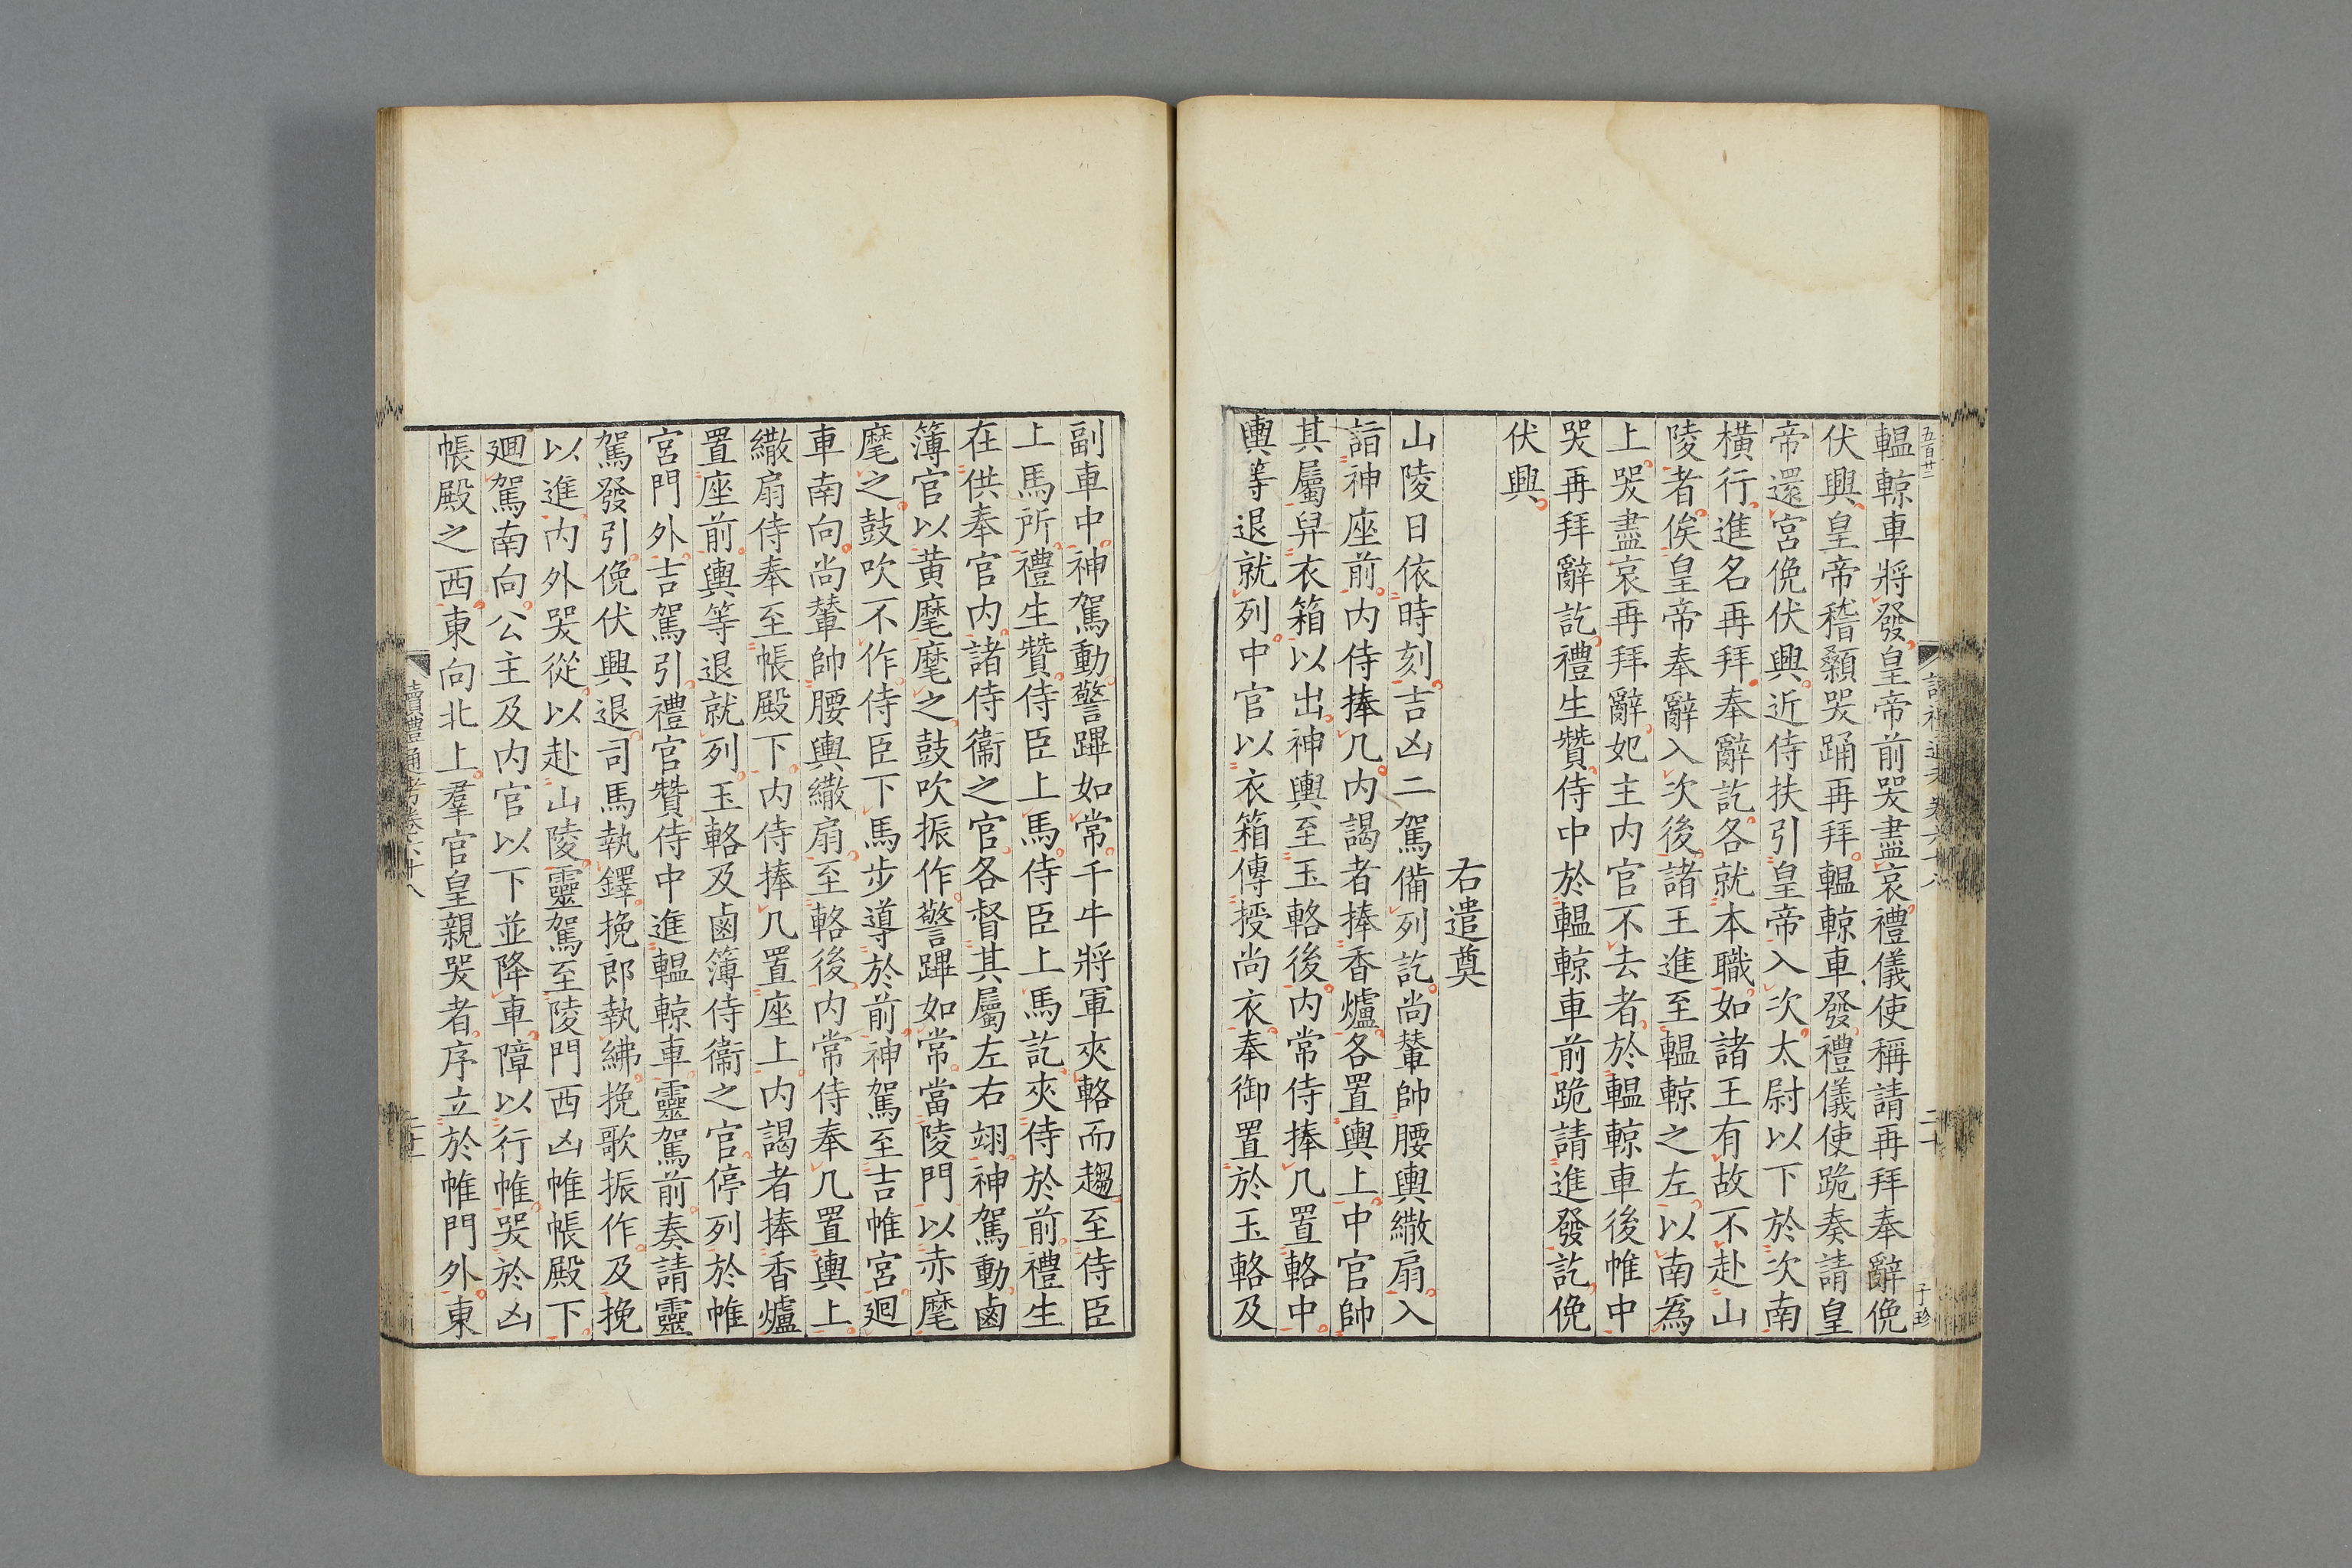 五百廿二
讀禮通考卷六十八
二十
子珍
轀輬車將發皇帝前哭盡哀禮儀使稱請再拜奉辭俛
伏興皇帝稽顙哭踊再拜轀輬車發禮儀使跪奏請皇
帝還宮俛伏興近侍扶引皇帝入次太尉以下於次南
橫行進名再拜奉辭訖各就本職如諸王有故不赴山
陵者俟皇帝奉辭入次後諸王進至轀輬之左以南爲
上哭盡哀再拜辭妃主内官不去者於轀輬車後帷中
哭再拜辭訖禮生贊侍中於轀輬車前跪請進發訖俛
伏興
右遣奠
山陵日依時刻吉凶二駕備列訖尚輦帥腰輿繖扇入
詣神座前内侍捧几内謁者捧香爐各置輿上中官帥
其屬舁衣箱以出神輿至玉輅後内常侍捧几置輅中
輿等退就列中官以衣箱傳授尚衣奉御置於玉輅及
副車中神駕動警蹕如常千牛將軍夾輅而趨至侍臣
上馬所禮生贊侍臣上馬侍臣上馬訖夾侍於前禮生
在供奉官内諸侍衞之官各督其屬左右翊神駕動鹵
簿官以黄麾麾之鼓吹振作警蹕如常當陵門以赤麾
麾之鼓吹不作侍臣下馬步導於前神駕至吉帷宮廻
車南向尚輦帥腰輿繖扇至輅後内常侍奉几置輿上
繖扇侍奉至帳殿下内侍捧几置座上内謁者捧香爐
置座前輿等退就列玉輅及鹵簿侍衞之官停列於帷
宮門外吉駕引禮官贊侍中進轀輬車靈駕前奏請靈
駕發引俛伏興退司馬執鐸挽郎執紼挽歌振作及挽
以進内外哭從以赴山陵靈駕至陵門西凶帷帳殿下
廻駕南向公主及内官以下並降車障以行帷哭於凶
帳殿之西東向北上羣官皇親哭者序立於帷門外東
讀禮通考卷六十八
二十一